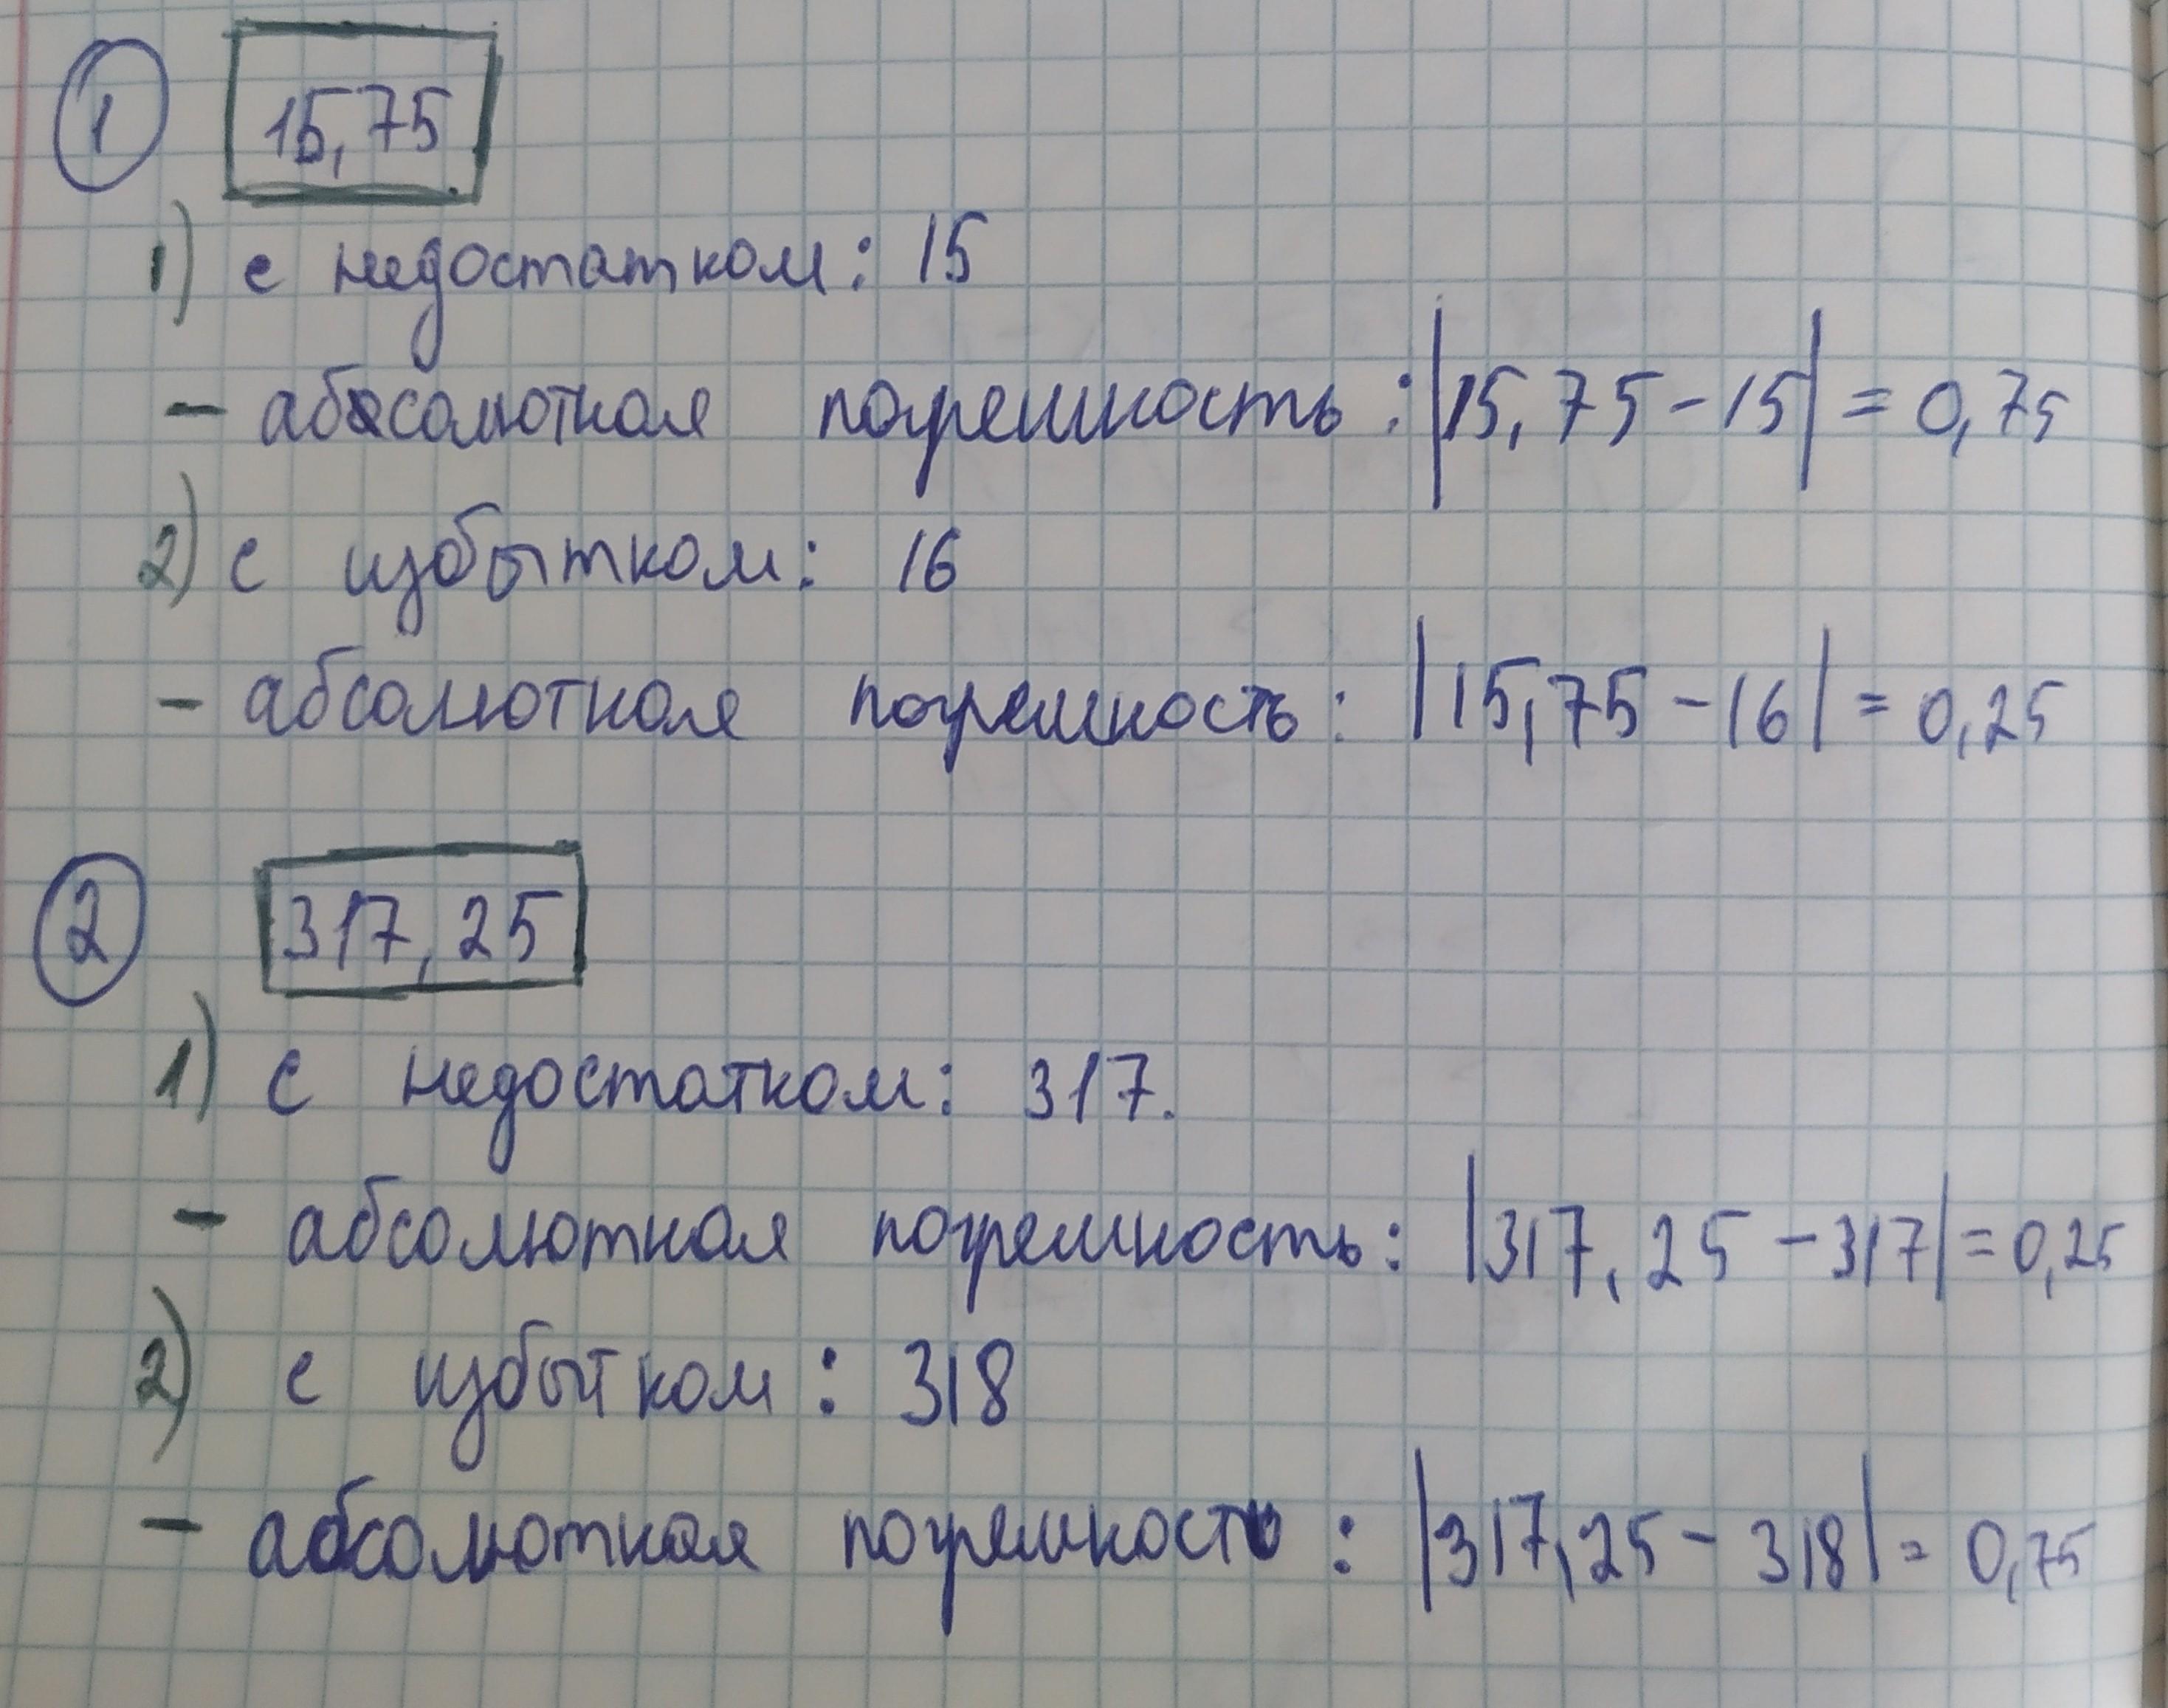 1 15,75
1) с недостатком: 15
- абсолютная погрешность: |15,75-15| = 0,75
2) с избытком: 16
- абсолютная погрешность: |15,75-16| = 0,25
2 317,25
1) с недостатком: 317.
- абсолютная погрешность: |317,25-317| = 0,25
2) с избытком: 318
- абсолютная погрешность: |317,25-318| = 0,75